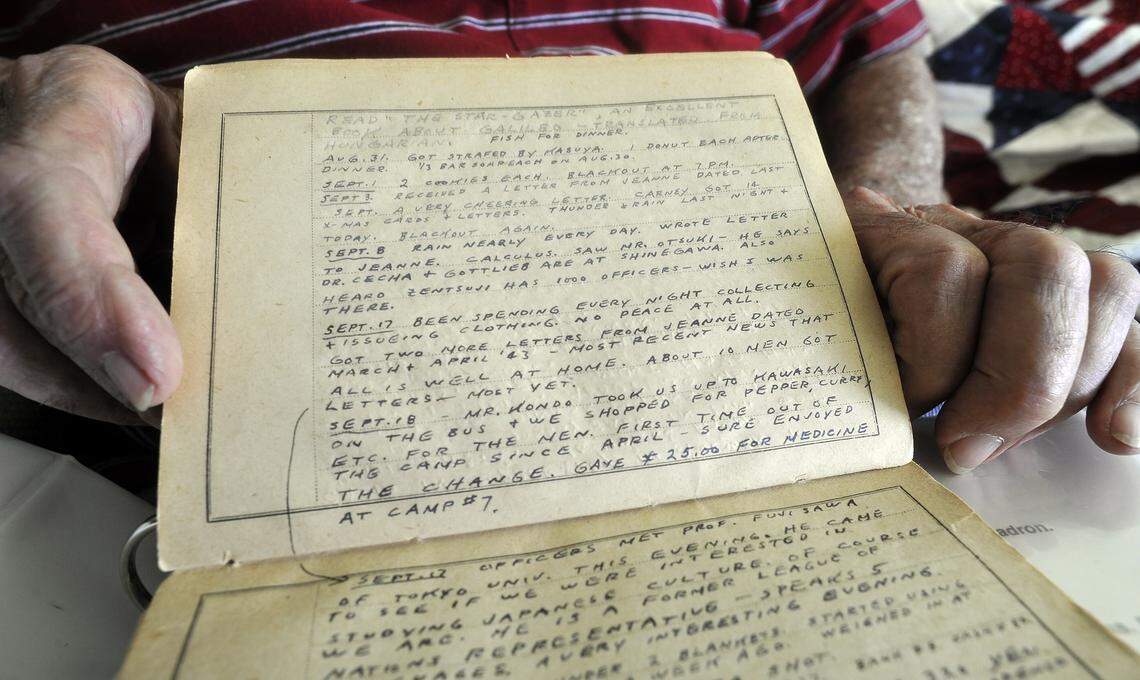 READ "THE STAR-GAZER", AN EXCELLENT
BOOK ABOUT GALILEO - TRANSLATED FROM
HUNGARIAN. FISH FOR DINNER.
AUG. 31. GOT STRAFED BY KASUYA. 1 DONUT EACH AFTER
DINNER. 1/3 BAR SOAP EACH ON AUG. 30.
SEPT. 1 2 COOKIES EACH. BLACKOUT AT 7 P.M.
SEPT 3. RECEIVED A LETTER FROM JEANNE DATED LAST
SEPT. A VERY CHEERING LETTER. CARNEY GOT 14
X-MAS CARDS & LETTERS. THUNDER & RAIN LAST NIGHT &
TODAY. BLACKOUT AGAIN.
SEPT. 8 RAIN NEARLY EVERY DAY. WROTE LETTER
TO JEANNE. CALCULUS. SAW MR. OTSUKI - HE SAYS
DR. CECHA & GOTTLIEB ARE AT SHINEGAWA. ALSO
HEARD ZENTSUJI HAS 1000 OFFICERS - WISH I WAS
THERE.
SEPT. 17 BEEN SPENDING EVERY NIGHT COLLECTING
& ISSUEING CLOTHING. NO PEACE AT ALL.
GOT TWO MORE LETTERS FROM JEANNE DATED
MARCH & APRIL '43 - MOST RECENT NEWS THAT
ALL IS WELL AT HOME. ABOUT 10 MEN GOT
LETTERS - MOST YET.
SEPT. 18 - MR. KONDO TOOK US UP TO KAWASAKI
ON THE BUS & WE SHOPPED FOR PEPPER, CURRY,
ETC. FOR THE MEN. FIRST TIME OUT OF
THE CAMP SINCE APRIL - SURE ENJOYED
THE CHANGE. GAVE ¥ 25.00 FOR MEDICINE
AT CAMP #7.
SEPT. 17 OFFICERS MET PROF. FUJISAWA
OF TOKYO UNIV. THIS EVENING. HE CAME
TO SEE IF WE WERE INTERESTED IN
STUDYING JAPANESE CULTURE. OF COURSE
WE ARE. HE IS A FORMER LEAGUE OF
NATIONS REPRESENTATIVE - SPEAKS 5
A VERY INTERESTING EVENING.
2 BLANKETS. STARTED USING
A WEEK AGO. WEIGHED IN AT
SHOT.
YEN.
adron.